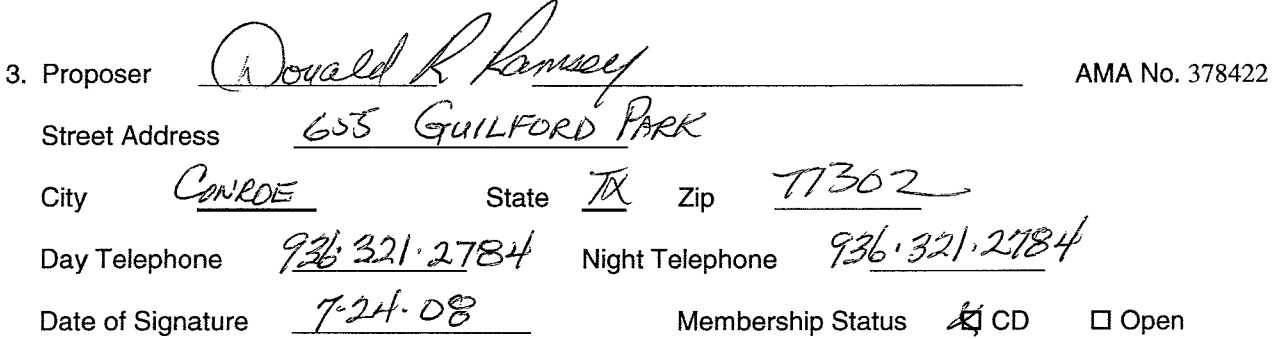 3. Proposer Donald R Ramsey AMA No. 378422
Street Address 655 GUILFORD PARK
City CONROE State TX Zip 77302
Day Telephone 936.321.2784 Night Telephone 936.321.2784
Date of Signature 7-24-08 Membership Status ☒ CD ☐ Open